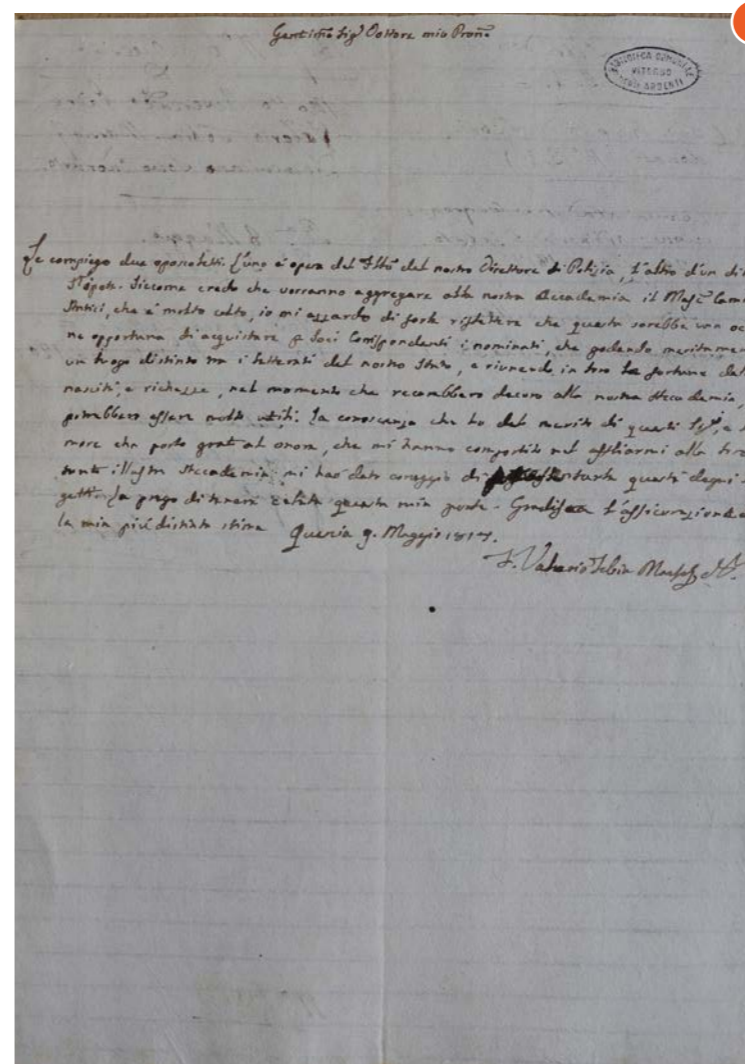 Gentilmo Sigr Dottore mio Prone
BIBLIOTECA COMUNALE
VITERBO
DEGLI ARDENTI
Le compiego due opuscoletti. L'uno è opera del del nostro Direttore di Polizia, l'altro d'un di
Nipote. Siccome credo che vorranno aggregare alla nostra Accademia il
Antici, che è molto colto, io mi azzardo di farle riflettere che questa sarebbe una oc
ne opportuna di acquistare p Soci Corrispondenti i nominati, che godendo meritamen
un luogo distinto tra i letterati del nostro Stato, e riunendo in loro le fortune del
nascita, e richezze, nel momento che recarebbero decoro alla nostra Accademia,
potrebbero essere molto utili. La conoscenza che ho del merito di questi Sigr, e
more che porto grat al onore, che mi hanno compartito nel affiliarmi alla
illustre Accademia mi had dato coraggio di questi degni
getti. La prego di tenere celata questa mia parte. Gradisca l'assicurazione
la mia più distinta stima Quercia 9. Maggio 1817.
F. Valerio